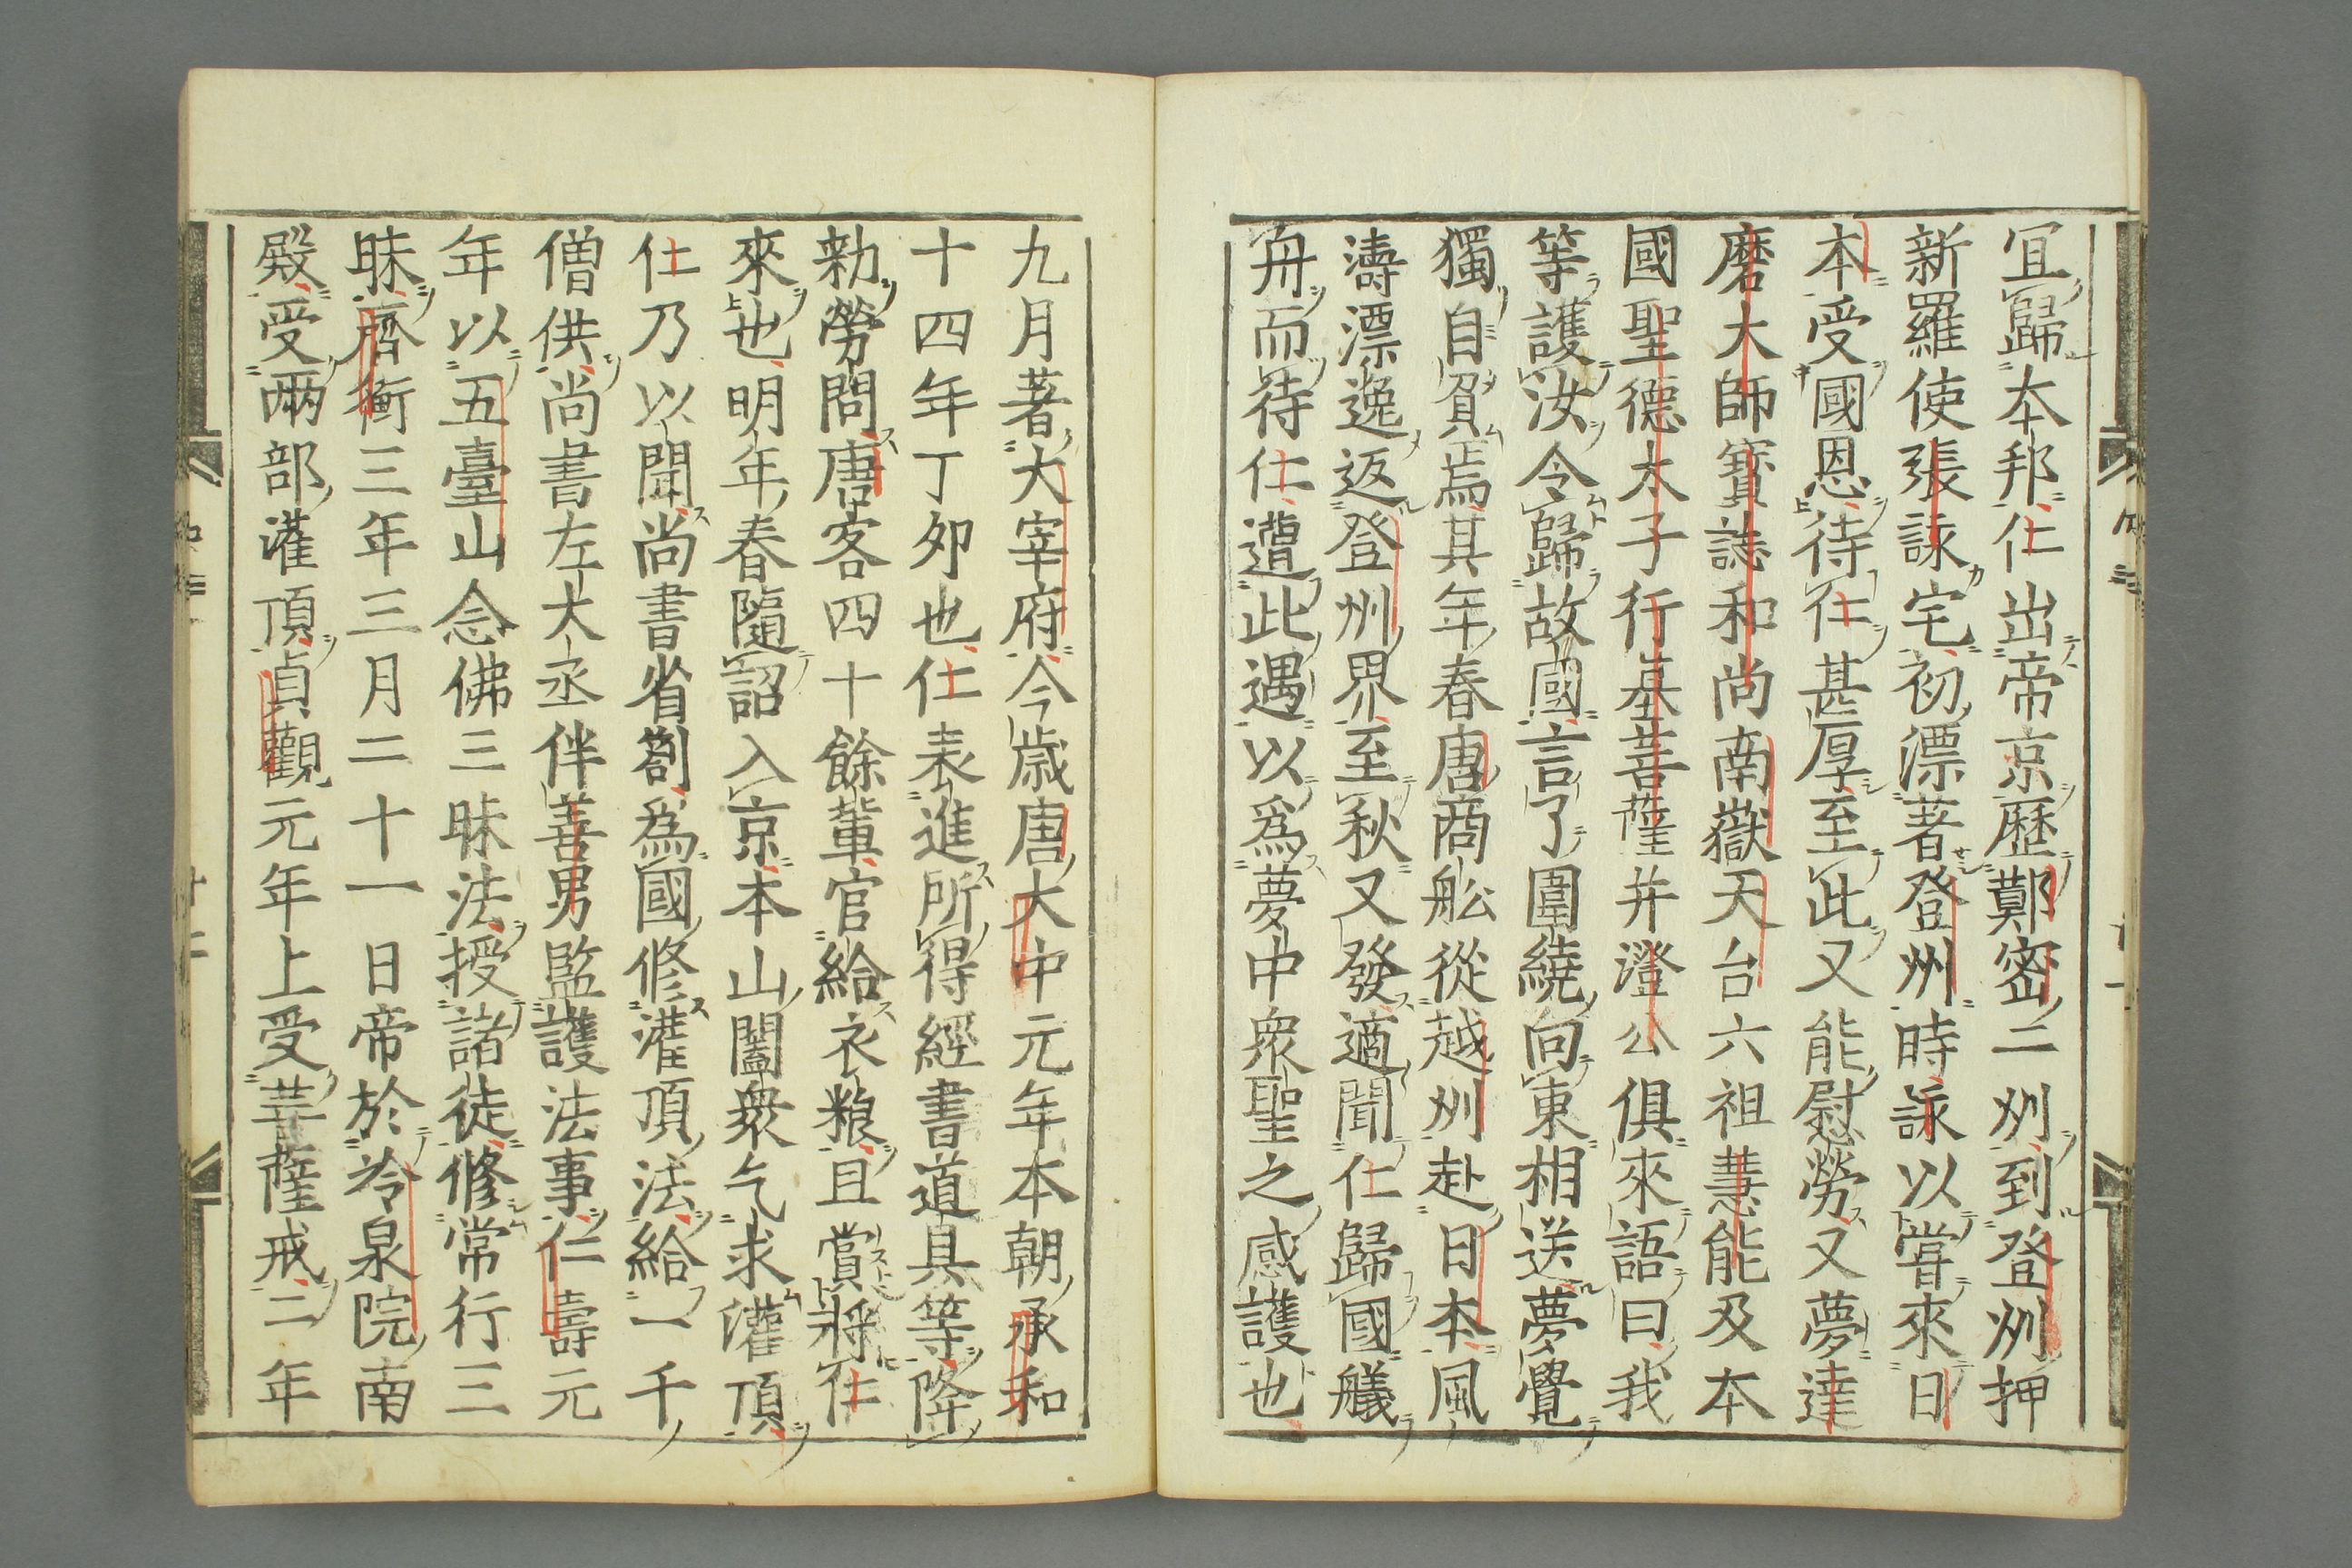 宜歸本邦仁出帝京歷鄭密二州到登州押
新羅使張詠宅初漂著登州時詠以嘗來日
本受國恩待仁甚厚至此又能慰勞又夢達
磨大師寶誌和尚南嶽天台六祖慧能及本
國聖德太子行基菩薩并澄公俱來語曰我
等護汝令歸故國言了圍繞向東相送夢覺
獨自負焉其年春唐商舩從越州赴日本風
濤漂逸返登州界至秋又發適聞仁歸國艤
舟而待仁遭此遇以爲夢中衆聖之感護也
九月著大宰府今歲唐大中元年本朝承和
十四年丁卯也仁表進所得經書道具等降
勅勞問唐客四十餘輩官給衣粮且賞將仁
來也明年春隨詔入京本山闔衆乞求灌頂
仕乃以聞尚書省劄爲國修灌頂法給一千
僧供尚書左大丞伴善男監護法事仁壽元
年以五臺山念佛三昧法授諸徒修常行三
昧齊衡三年三月二十一日帝於冷泉院南
殿受兩部灌頂貞觀元年上受菩薩戒二年